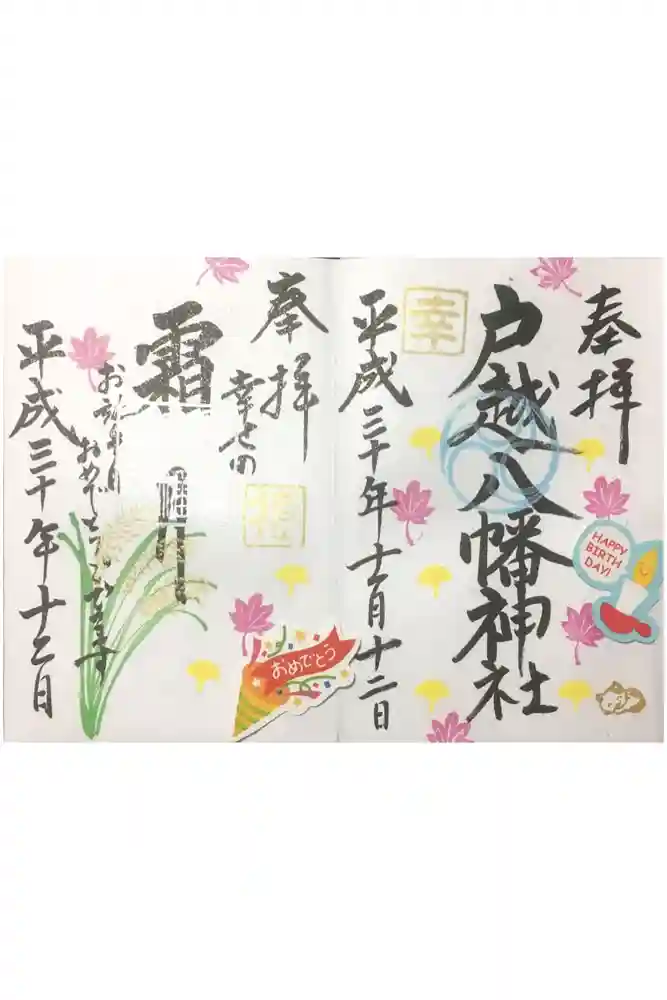 奉拝
戸越八幡神社
幸
平成三十年十一月十二日
HAPPY
BIRTH
DAY!
奉拝
幸せの
霜月
お誕生日
おめでとうございます
平成三十年十二日
おめでとう